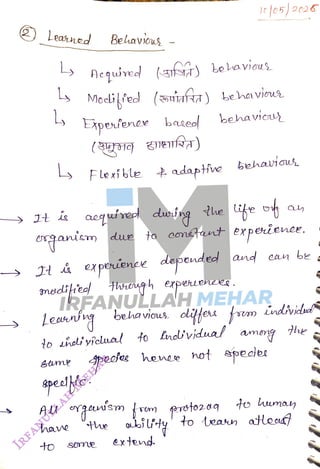 11/05/2026
② Learned Behaviour -
↳ Acquired (अर्जित) behaviour
↳ Modified (रूपांतरित) behaviour
↳ Experience based behaviour
(अनुभव आधारित)
↳ Flexible & adaptive behaviour
→ It is acquired during the life of an
organism due to constant experience.
→ It is experience depended and can be
modified through experiences.
IRFANULLAH MEHAR
→ Learning behaviour differs from individual
to individual to individual among the
same species hence not species
specific.
→ All organism from protozoa to human
have the ability to learn atleast
to some extend.